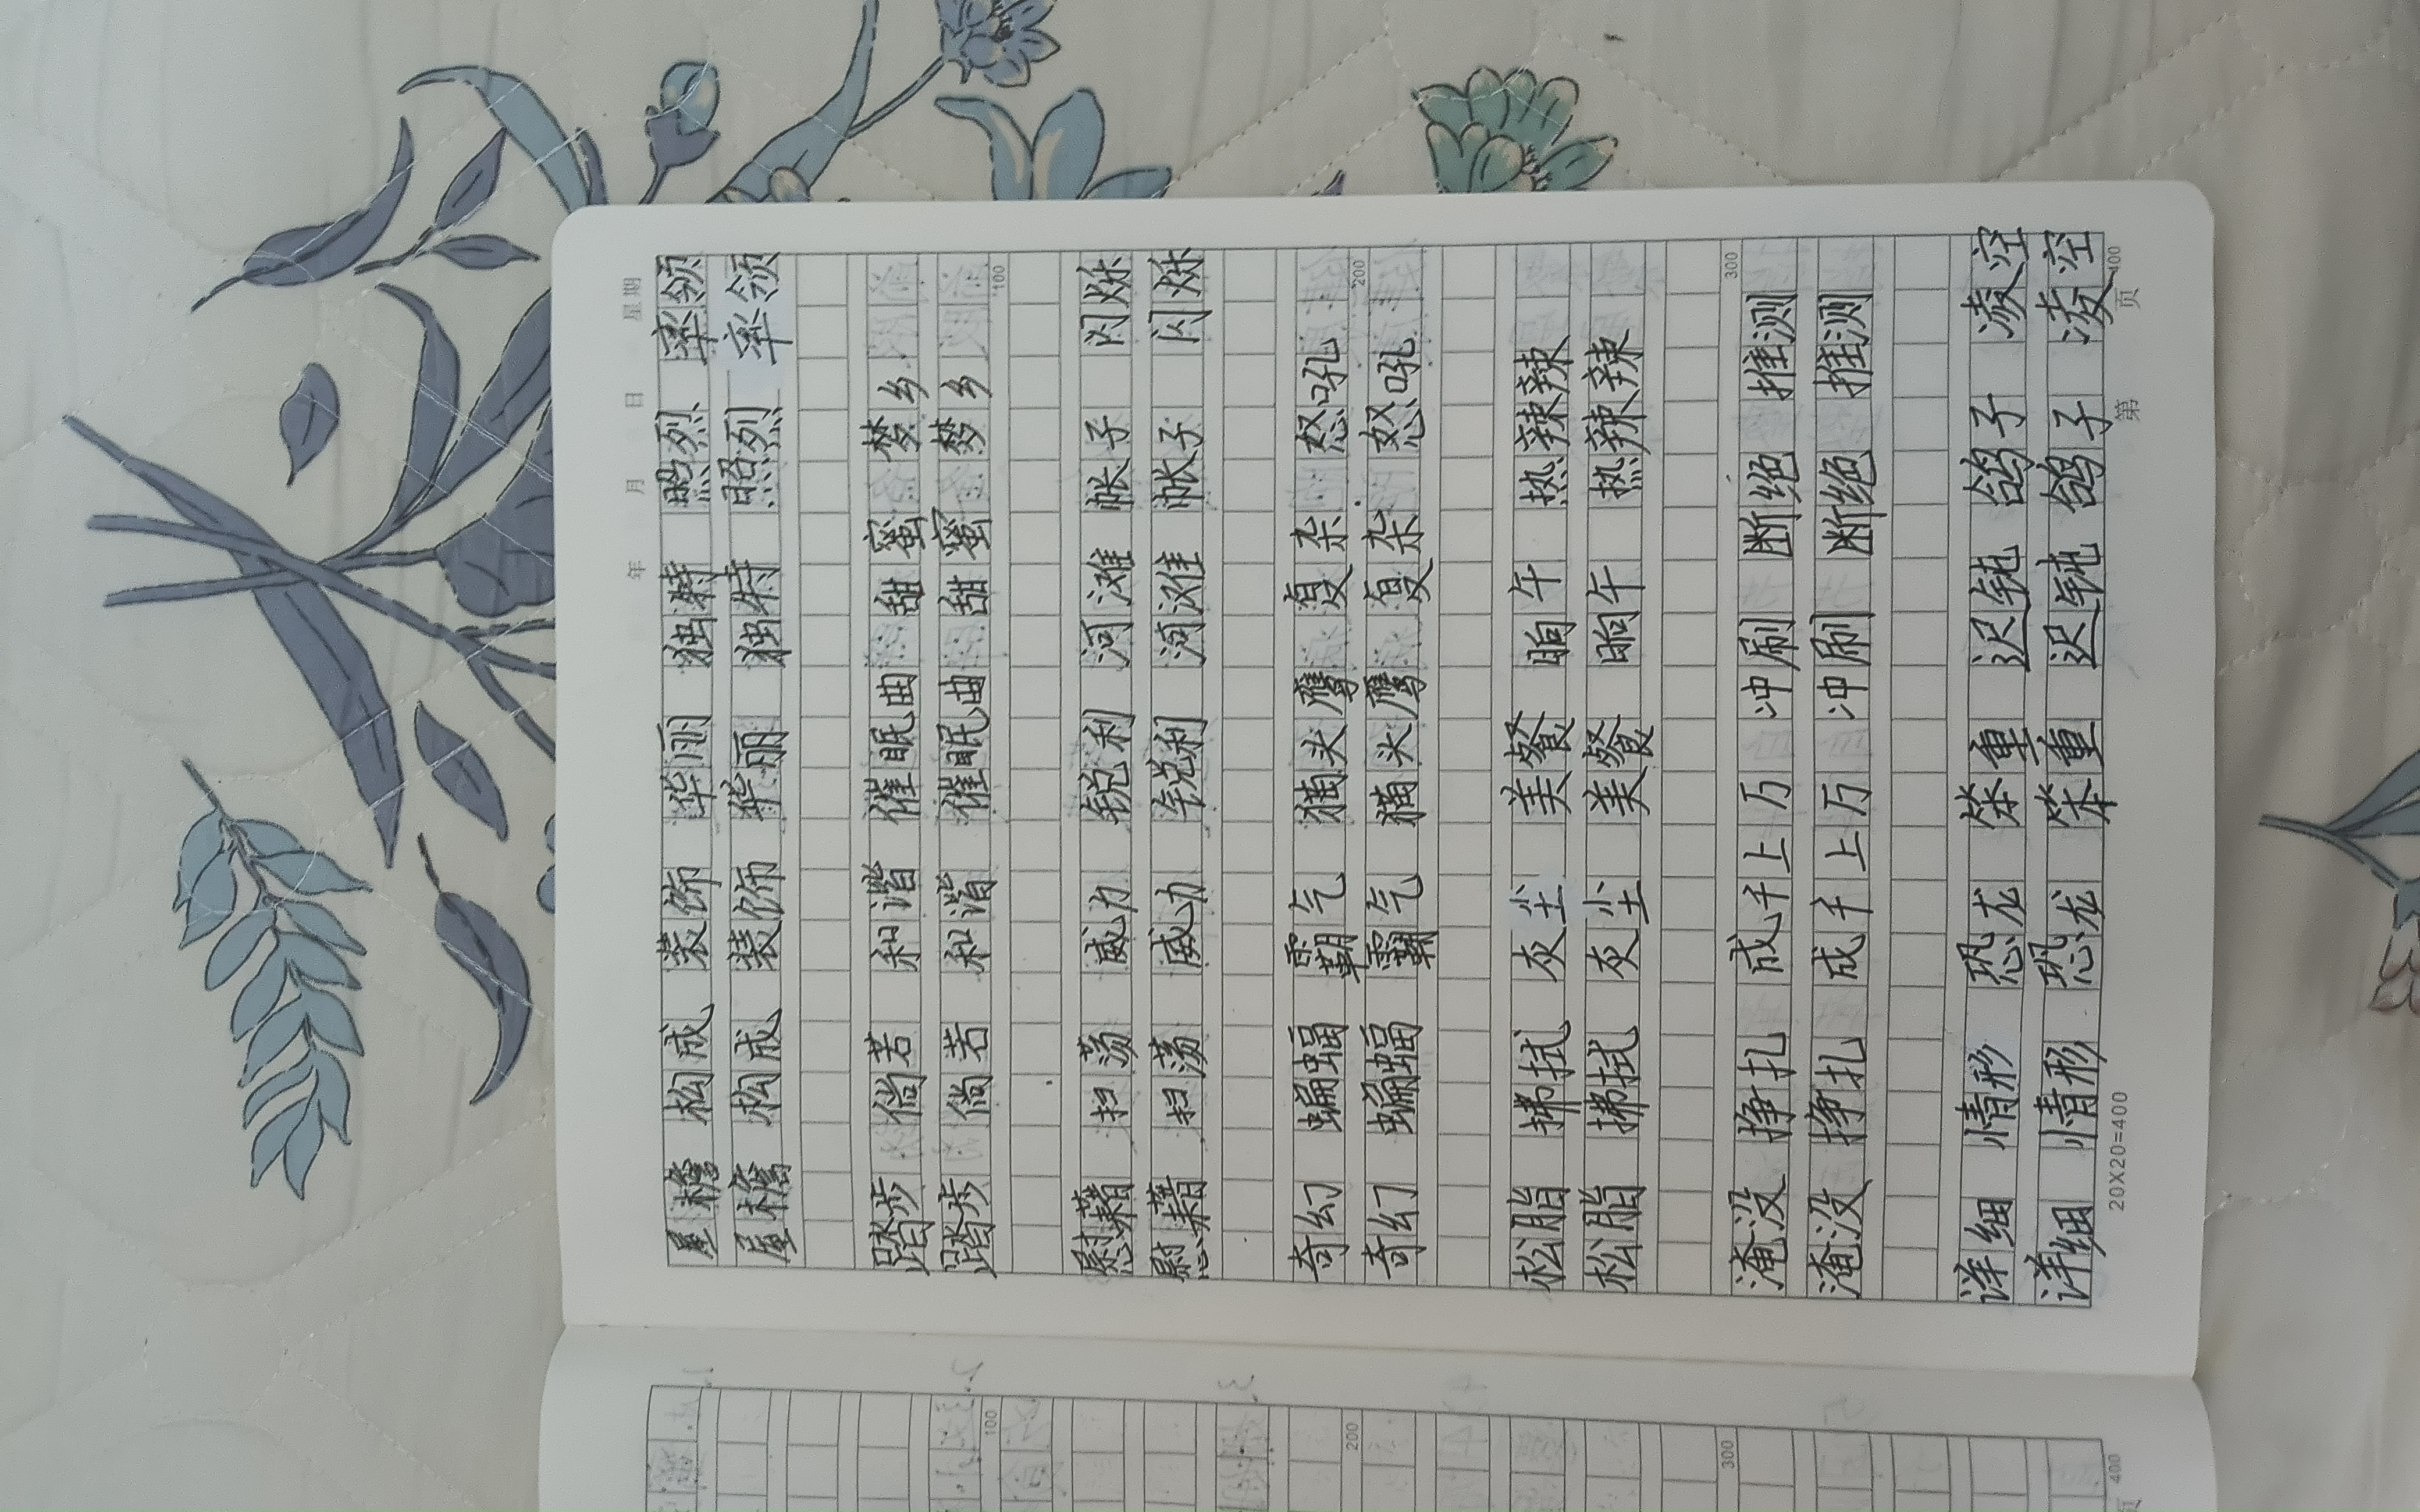 年 月 日 星期
屋檐 构成 装饰 华丽 独特 照烈 率领
屋檐 构成 装饰 华丽 独特 照烈 率领
踏步 倘若 和谐 催眠曲 甜蜜 梦乡
踏步 倘若 和谐 催眠曲 甜蜜 梦乡
100
慰藉 扫荡 威力 锐利 河滩 帐子 闪烁
慰藉 扫荡 威力 锐利 河滩 帐子 闪烁
奇幻 蝙蝠 霸气 猫头鹰 复杂 怒吼
奇幻 蝙蝠 霸气 猫头鹰 复杂 怒吼
200
松脂 拂拭 灰尘 美餐 晌午 热辣辣
松脂 拂拭 灰尘 美餐 晌午 热辣辣
300
淹没 挣扎 成千上万 冲刷 断绝 推测
淹没 挣扎 成千上万 冲刷 断绝 推测
详细 情形 恐龙 笨重 迟钝 鸽子 凌空
详细 情形 恐龙 笨重 迟钝 鸽子 凌空
400
20X20=400 第 页
100
200
300
400
页